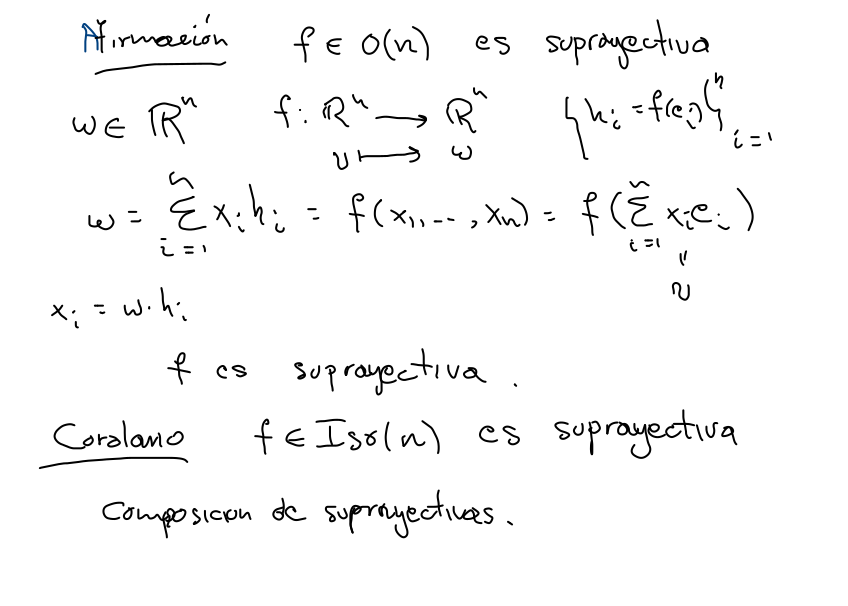 Afirmación f ∈ O(n) es suprayectiva
w ∈ ℝⁿ f: ℝⁿ ⟶ ℝⁿ {hᵢ = f(eᵢ)}ⁿᵢ₌₁
v ⟼ w
w = ∑ⁿᵢ₌₁ xᵢhᵢ = f(x₁,..., xₙ) = f(∑ⁿᵢ₌₁ xᵢeᵢ)
"
v
xᵢ = w·hᵢ
f es suprayectiva.
Corolario f ∈ Iso(n) es suprayectiva
Composicion de suprayectivas.